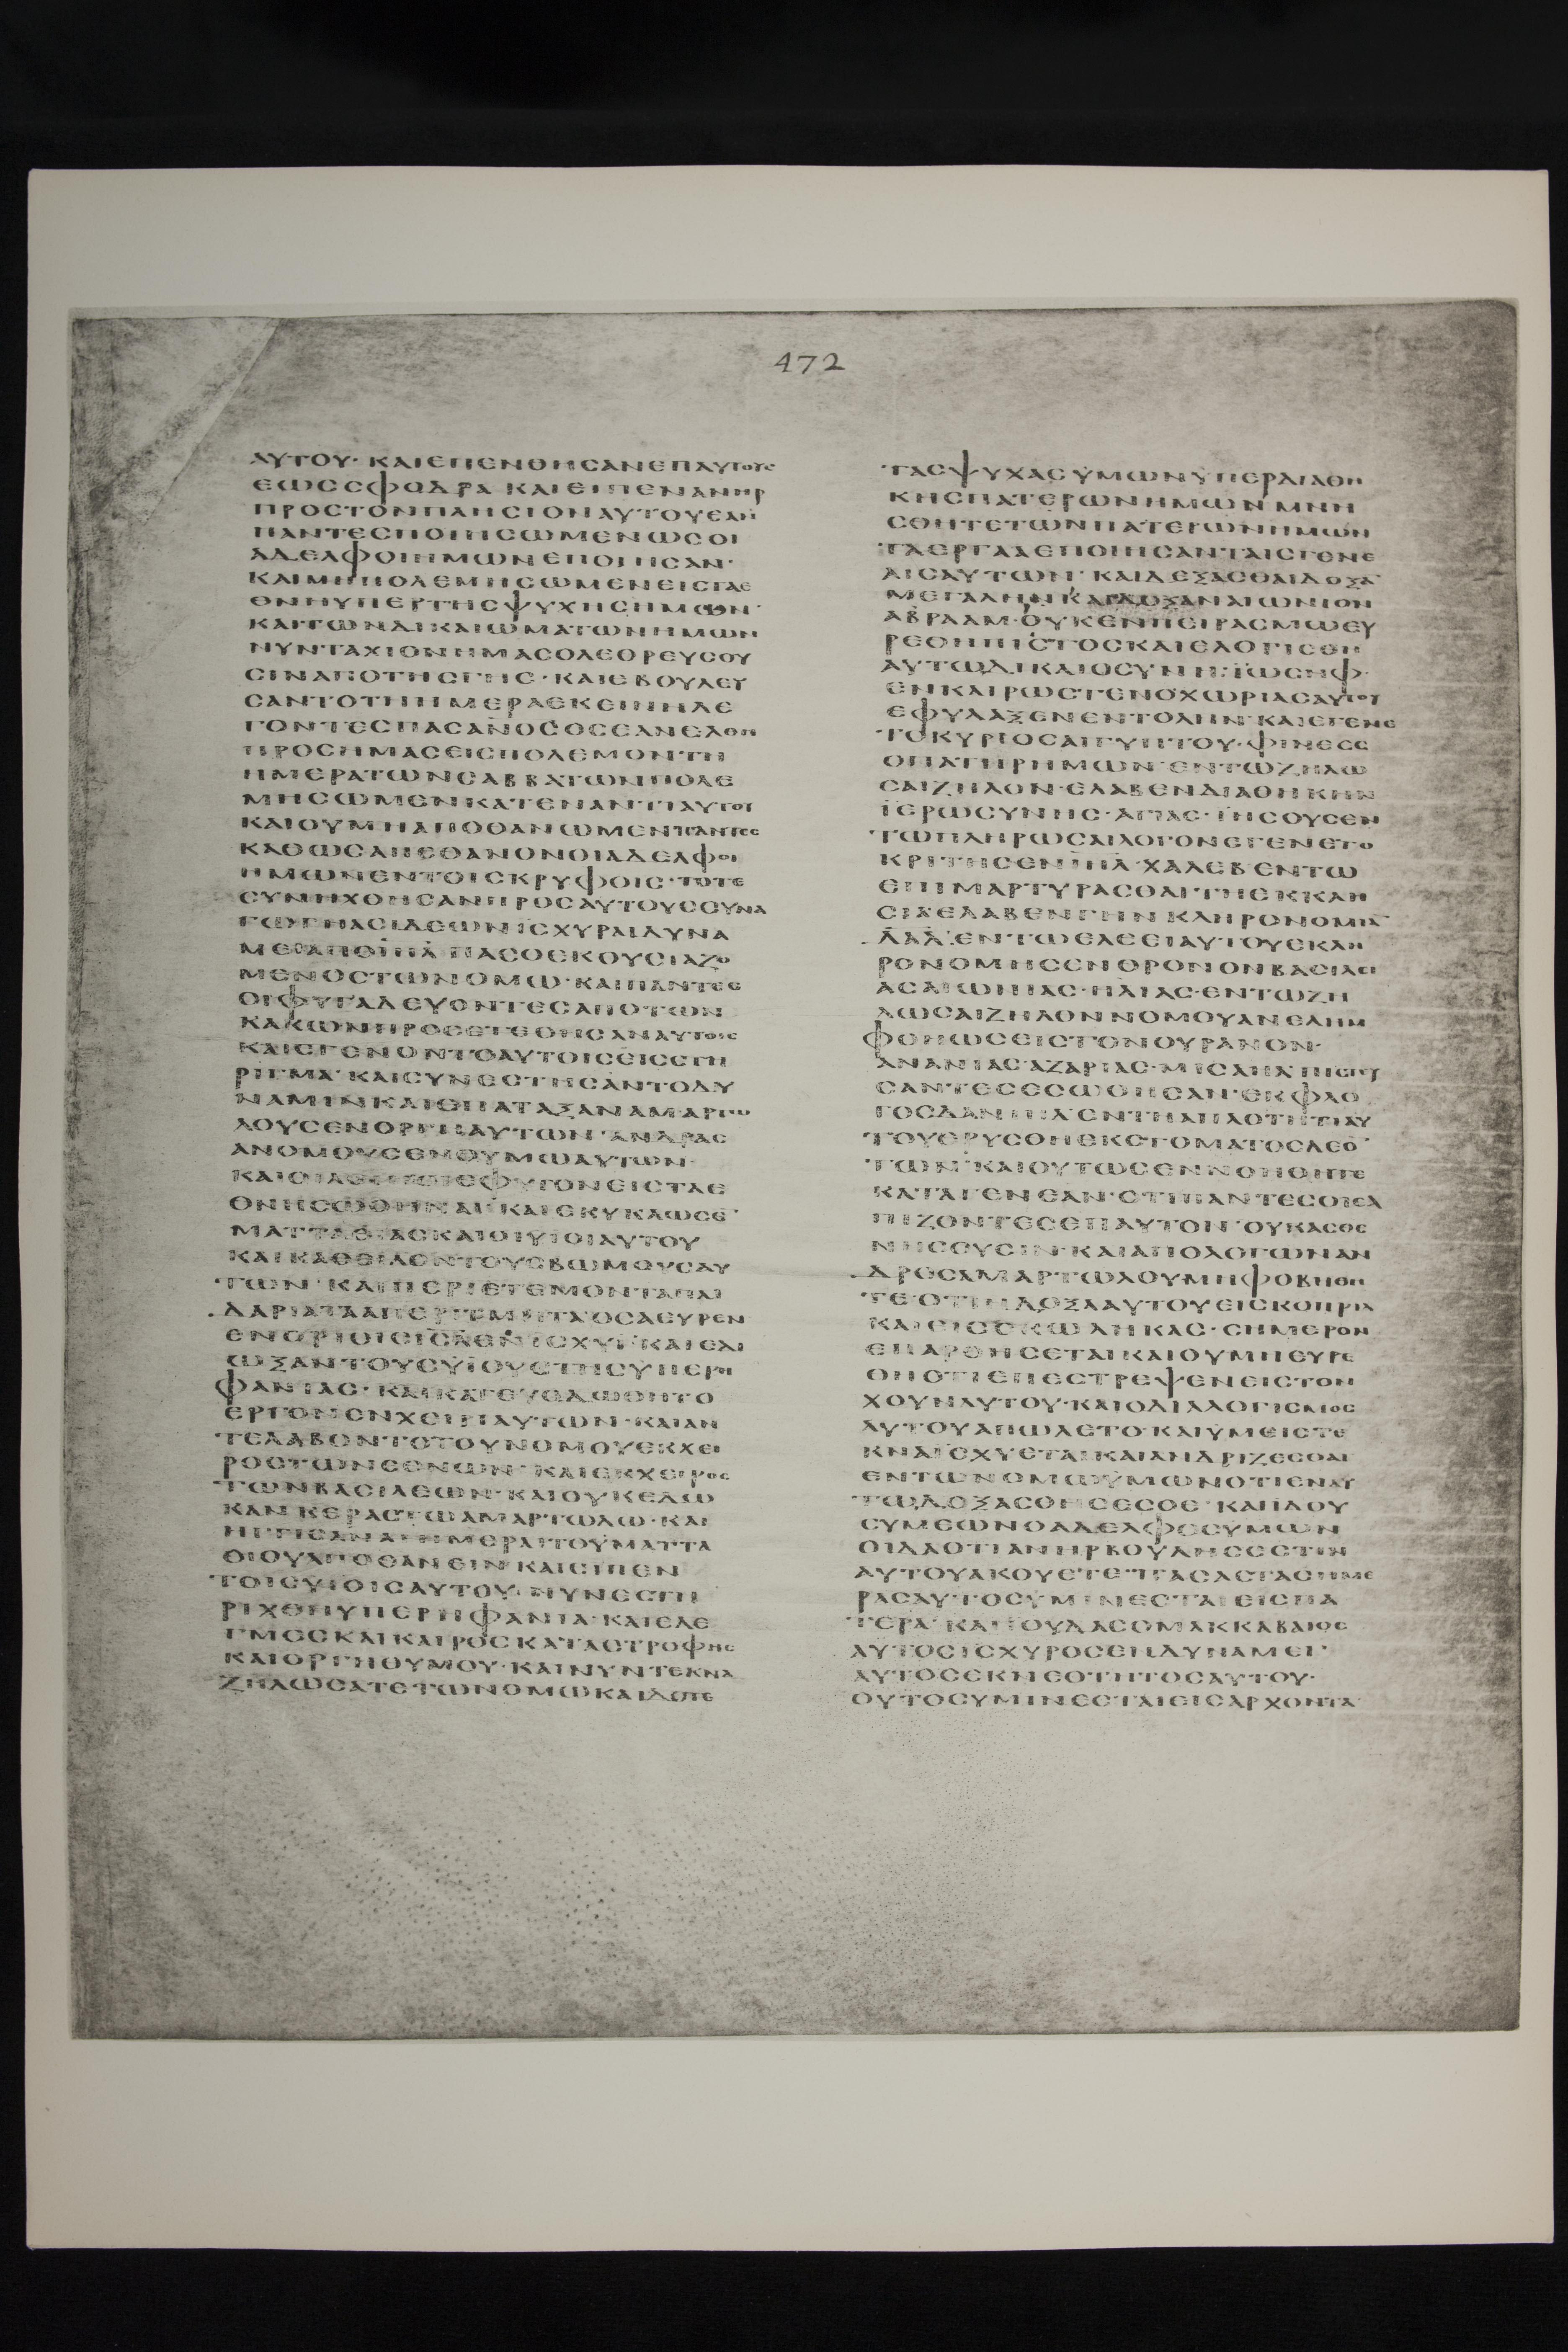 472
ΑΥΤΟΥ· ΚΑΙΕΠΕΝΘΗΣΑΝΕΠΑΥΤΟΥΣ
ΕΩΣΣΦΟΔΡΑ ΚΑΙΕΙΠΕΝΑΝΗΡ
ΠΡΟΣΤΟΝΠΛΗΣΙΟΝΑΥΤΟΥΕΑΝ
ΠΑΝΤΕΣΠΟΙΗΣΩΜΕΝΩΣΟΙ
ΑΔΕΛΦΟΙΗΜΩΝΕΠΟΙΗΣΑΝ·
ΚΑΙΜΗΠΟΛΕΜΗΣΩΜΕΝΕΙΣΤΑΕ
ΘΝΗΥΠΕΡΤΗΣΨΥΧΗΣΗΜΩΝ·
ΚΑΙΤΩΝΔΙΚΑΙΩΜΑΤΩΝΗΜΩΝ
ΝΥΝΤΑΧΙΟΝΗΜΑΣΟΛΕΘΡΕΥΣΟΥ
ΣΙΝΑΠΟΤΗΣΓΗΣ· ΚΑΙΕΒΟΥΛΕΥ
ΣΑΝΤΟΤΗΗΜΕΡΑΕΚΕΙΝΗΛΕ
ΓΟΝΤΕΣΠΑΣΑΝΟΣΟΣΕΑΝΕΛΘΗ
ΠΡΟΣΗΜΑΣΕΙΣΠΟΛΕΜΟΝΤΗ
ΗΜΕΡΑΤΩΝΣΑΒΒΑΤΩΝΠΟΛΕ
ΜΗΣΩΜΕΝΚΑΤΕΝΑΝΤΙΑΥΤΟΥ
ΚΑΙΟΥΜΗΑΠΟΘΑΝΩΜΕΝΠΑΝΤΕΣ
ΚΑΘΩΣΑΠΕΘΑΝΟΝΟΙΑΔΕΛΦΟΙ
ΗΜΩΝΕΝΤΟΙΣΚΡΥΦΟΙΣ·ΤΟΤΕ
ΣΥΝΗΧΘΗΣΑΝΠΡΟΣΑΥΤΟΥΣΣΥΝΑ
ΓΩΓΗΑΣΙΔΕΩΝΙΣΧΥΡΑΙΔΥΝΑ
ΜΕΙΑΠΟΙΗΛ ΠΑΣΟΕΚΟΥΣΙΑΖΟ
ΜΕΝΟΣΤΩΝΟΜΩ·ΚΑΙΠΑΝΤΕΣ
ΟΙΦΥΓΑΔΕΥΟΝΤΕΣΑΠΟΤΩΝ
ΚΑΚΩΝΠΡΟΣΕΤΕΘΗΣΑΝΑΥΤΟΙΣ
ΚΑΙΕΓΕΝΟΝΤΟΑΥΤΟΙΣΕΙΣΣΤΗ
ΡΙΓΜΑ· ΚΑΙΣΥΝΕΣΤΗΣΑΝΤΟΔΥ
ΝΑΜΙΝΚΑΙΕΠΑΤΑΞΑΝΑΜΑΡΤΩ
ΛΟΥΣΕΝΟΡΓΗΑΥΤΩΝ·ΑΝΔΡΑΣ
ΑΝΟΜΟΥΣΕΝΘΥΜΩΑΥΤΩΝ·
ΚΑΙΟΙΛΟΙΠΟΙΕΦΥΓΟΝΕΙΣΤΑΕ
ΘΝΗΣΩΘΗΝΑΙ·ΚΑΙΕΚΥΚΛΩΣΕ·
ΜΑΤΤΑΘΙΑΣΚΑΙΟΙΥΙΟΙΑΥΤΟΥ
ΚΑΙΚΑΘΕΙΛΟΝΤΟΥΣΒΩΜΟΥΣΑΥ
ΤΩΝ· ΚΑΙΠΕΡΙΕΤΕΜΟΝΤΑΠΑΙ
ΔΑΡΙΑΤΑΑΠΕΡΙΤΜΗΤΑΟΣΑΕΥΡΕΝ
ΕΝΟΡΙΟΙΣΙΣΛΕΝΙΣΧΥΙ·ΚΑΙΕΔΙ
ΩΞΑΝΤΟΥΣΥΪΟΥΣΤΗΣΥΠΕΡΗ
ΦΑΝΙΑΣ·ΚΑΙΚΑΤΕΥΟΔΩΘΗΤΟ
ΕΡΓΟΝΕΝΧΕΙΡΙΑΥΤΩΝ·ΚΑΙΑΝ
ΤΕΛΑΒΟΝΤΟΤΟΥΝΟΜΟΥΕΚΧΕΙ
ΡΟΣΤΩΝΕΘΝΩΝ· ΚΑΙΕΚΧΕΙΡΟΣ
ΤΩΝΒΑΣΙΛΕΩΝ·ΚΑΙΟΥΚΕΔΩ
ΚΑΝ ΚΕΡΑΣΤΩΑΜΑΡΤΩΛΩ·ΚΑΙ
ΗΓΓΙΣΑΝΑΙΗΜΕΡΑΙΤΟΥΜΑΤΤΑ
ΘΙΟΥΑΠΟΘΑΝΕΙΝ ΚΑΙΕΙΠΕΝ
ΤΟΙΣΥΙΟΙΣΑΥΤΟΥ·ΝΥΝΕΣΤΗ
ΡΙΧΘΗΥΠΕΡΗΦΑΝΙΑ·ΚΑΙΕΛΕ
ΓΜΟΣΚΑΙΚΑΙΡΟΣΚΑΤΑΣΤΡΟΦΗΣ
ΚΑΙΟΡΓΗΘΥΜΟΥ·ΚΑΙΝΥΝΤΕΚΝΑ
ΖΗΛΩΣΑΤΕΤΩΝΟΜΩΚΑΙΔΟΤΕ
ΤΑΣΨΥΧΑΣΥΜΩΝΥΠΕΡΔΙΑΘΗ
ΚΗΣΠΑΤΕΡΩΝΗΜΩΝ ΜΝΗ
ΣΘΗΤΕΤΩΝΠΑΤΕΡΩΝΗΜΩΝ
ΤΑΕΡΓΑΑΕΠΟΙΗΣΑΝΤΑΙΣΓΕΝΕ
ΑΙΣΑΥΤΩΝ· ΚΑΙΔΕΞΑΣΘΑΙΔΟΞΑ
ΜΕΓΑΛΗΝΚΑΙ ΑΙΩΝΙΟΝ
ΑΒΡΑΑΜ·ΟΥΚΕΝΠΕΙΡΑΣΜΩΕΥ
ΡΕΘΗΠΙΣΤΟΣΚΑΙΕΛΟΓΙΣΘΗ
ΑΥΤΩΔΙΚΑΙΟΣΥΝΗ·ΪΩΣΗΦ·
ΕΝΚΑΙΡΩΣΤΕΝΟΧΩΡΙΑΣΑΥΤΟΥ
ΕΦΥΛΑΞΕΝΕΝΤΟΛΗΝ·ΚΑΙΕΓΕΝΕ
ΤΟΚΥΡΙΟΣΑΙΓΥΠΤΟΥ·ΦΙΝΕΕΣ
ΟΠΑΤΗΡΗΜΩΝ·ΕΝΤΩΖΗΛΩ
ΣΑΙΖΗΛΟΝ·ΕΛΑΒΕΝΔΙΑΘΗΚΗΝ
ΪΕΡΩΣΥΝΗΣ·ΑΓΙΑΣ·ΙΗΣΟΥΣΕΝ
ΤΩΠΛΗΡΩΣΑΙΛΟΓΟΝΕΓΕΝΕΤΟ
ΚΡΙΤΗΣΕΝΙΗΛ·ΧΑΛΕΒΕΝΤΩ
ΕΠΙΜΑΡΤΥΡΑΣΘΑΙΤΗΕΚΚΛΗ
ΣΙΑΕΛΑΒΕΝΓΗΝ ΚΛΗΡΟΝΟΜΙΑ
ΔΑΔ·ΕΝΤΩΕΛΕΕΙΑΥΤΟΥΕΚΛΗ
ΡΟΝΟΜΗΣΕΝΘΡΟΝΟΝΒΑΣΙΛΕΙ
ΑΣΑΙΩΝΙΑΣ·ΗΛΙΑΣ·ΕΝΤΩΖΗ
ΛΩΣΑΙΖΗΛΟΝΝΟΜΟΥΑΝΕΛΗΜ
ΦΘΗΩΣΕΙΣΤΟΝΟΥΡΑΝΟΝ·
ΑΝΑΝΙΑΣΑΖΑΡΙΑΣ·ΜΙΣΑΗΛΠΙΣΤΕΥ
ΣΑΝΤΕΣΕΣΩΘΗΣΑΝ·ΕΚΦΛΟ
ΓΟΣΔΑΝΙΗΛ·ΕΝΤΗΑΠΛΟΤΗΤΙΑΥ
ΤΟΥΕΡΥΣΘΗΕΚΣΤΟΜΑΤΟΣΛΕΟ
ΤΩΝ· ΚΑΙΟΥΤΩΣΕΝΝΟΗΘΗΤΕ
ΚΑΤΑΓΕΝΕΑΝ·ΟΤΙΠΑΝΤΕΣΟΙΕΛ
ΠΙΖΟΝΤΕΣΕΠΑΥΤΟΝ·ΟΥΚΑΣΘΕ
ΝΗΣΟΥΣΙΝ·ΚΑΙΑΠΟΛΟΓΩΝΑΝ
ΔΡΟΣΑΜΑΡΤΩΛΟΥΜΗΦΟΒΗΘΗ
ΤΕΟΤΙΗΔΟΞΑΑΥΤΟΥΕΙΣΚΟΠΡΙΑ
ΚΑΙΕΙΣΣΚΩΛΗΚΑΣ·ΣΗΜΕΡΟΝ
ΕΠΑΡΘΗΣΕΤΑΙΚΑΙΟΥΜΗΕΥΡΕ
ΘΗΟΤΙΕΠΕΣΤΡΕΨΕΝΕΙΣΤΟΝ
ΧΟΥΝΑΥΤΟΥ·ΚΑΙΟΔΙΑΛΟΓΙΣΜΟΣ
ΑΥΤΟΥΑΠΩΛΕΤΟ·ΚΑΙΥΜΕΙΣΤΕ
ΚΝΑΙΣΧΥΕΤΑΙΚΑΙΑΝΔΡΙΖΕΣΘΑΙ
ΕΝΤΩΝΟΜΩΫΜΩΝΟΤΙΕΝΑΥ
ΤΩΔΟΞΑΣΘΗΣΕΣΘΕ·ΚΑΙΙΔΟΥ
ΣΥΜΕΩΝΟΑΔΕΛΦΟΣΥΜΩΝ
ΟΙΔΑΟΤΙΑΝΗΡΒΟΥΛΗΣΕΣΤΙΝ
ΑΥΤΟΥΑΚΟΥΕΤΕ·ΠΑΣΑΣΤΑΣΗΜΕ
ΡΑΣΑΥΤΟΣΥΜΙΝΕΣΤΑΙΕΙΣΠΑ
ΤΕΡΑ· ΚΑΙΙΟΥΔΑΣΟΜΑΚΚΑΒΑΙΟΣ
ΑΥΤΟΣΙΣΧΥΡΟΣΕΝΔΥΝΑΜΕΙ·
ΑΥΤΟΣΕΚΝΕΟΤΗΤΟΣΑΥΤΟΥ·
ΟΥΤΟΣΥΜΙΝΕΣΤΑΙΕΙΣΑΡΧΟΝΤΑ